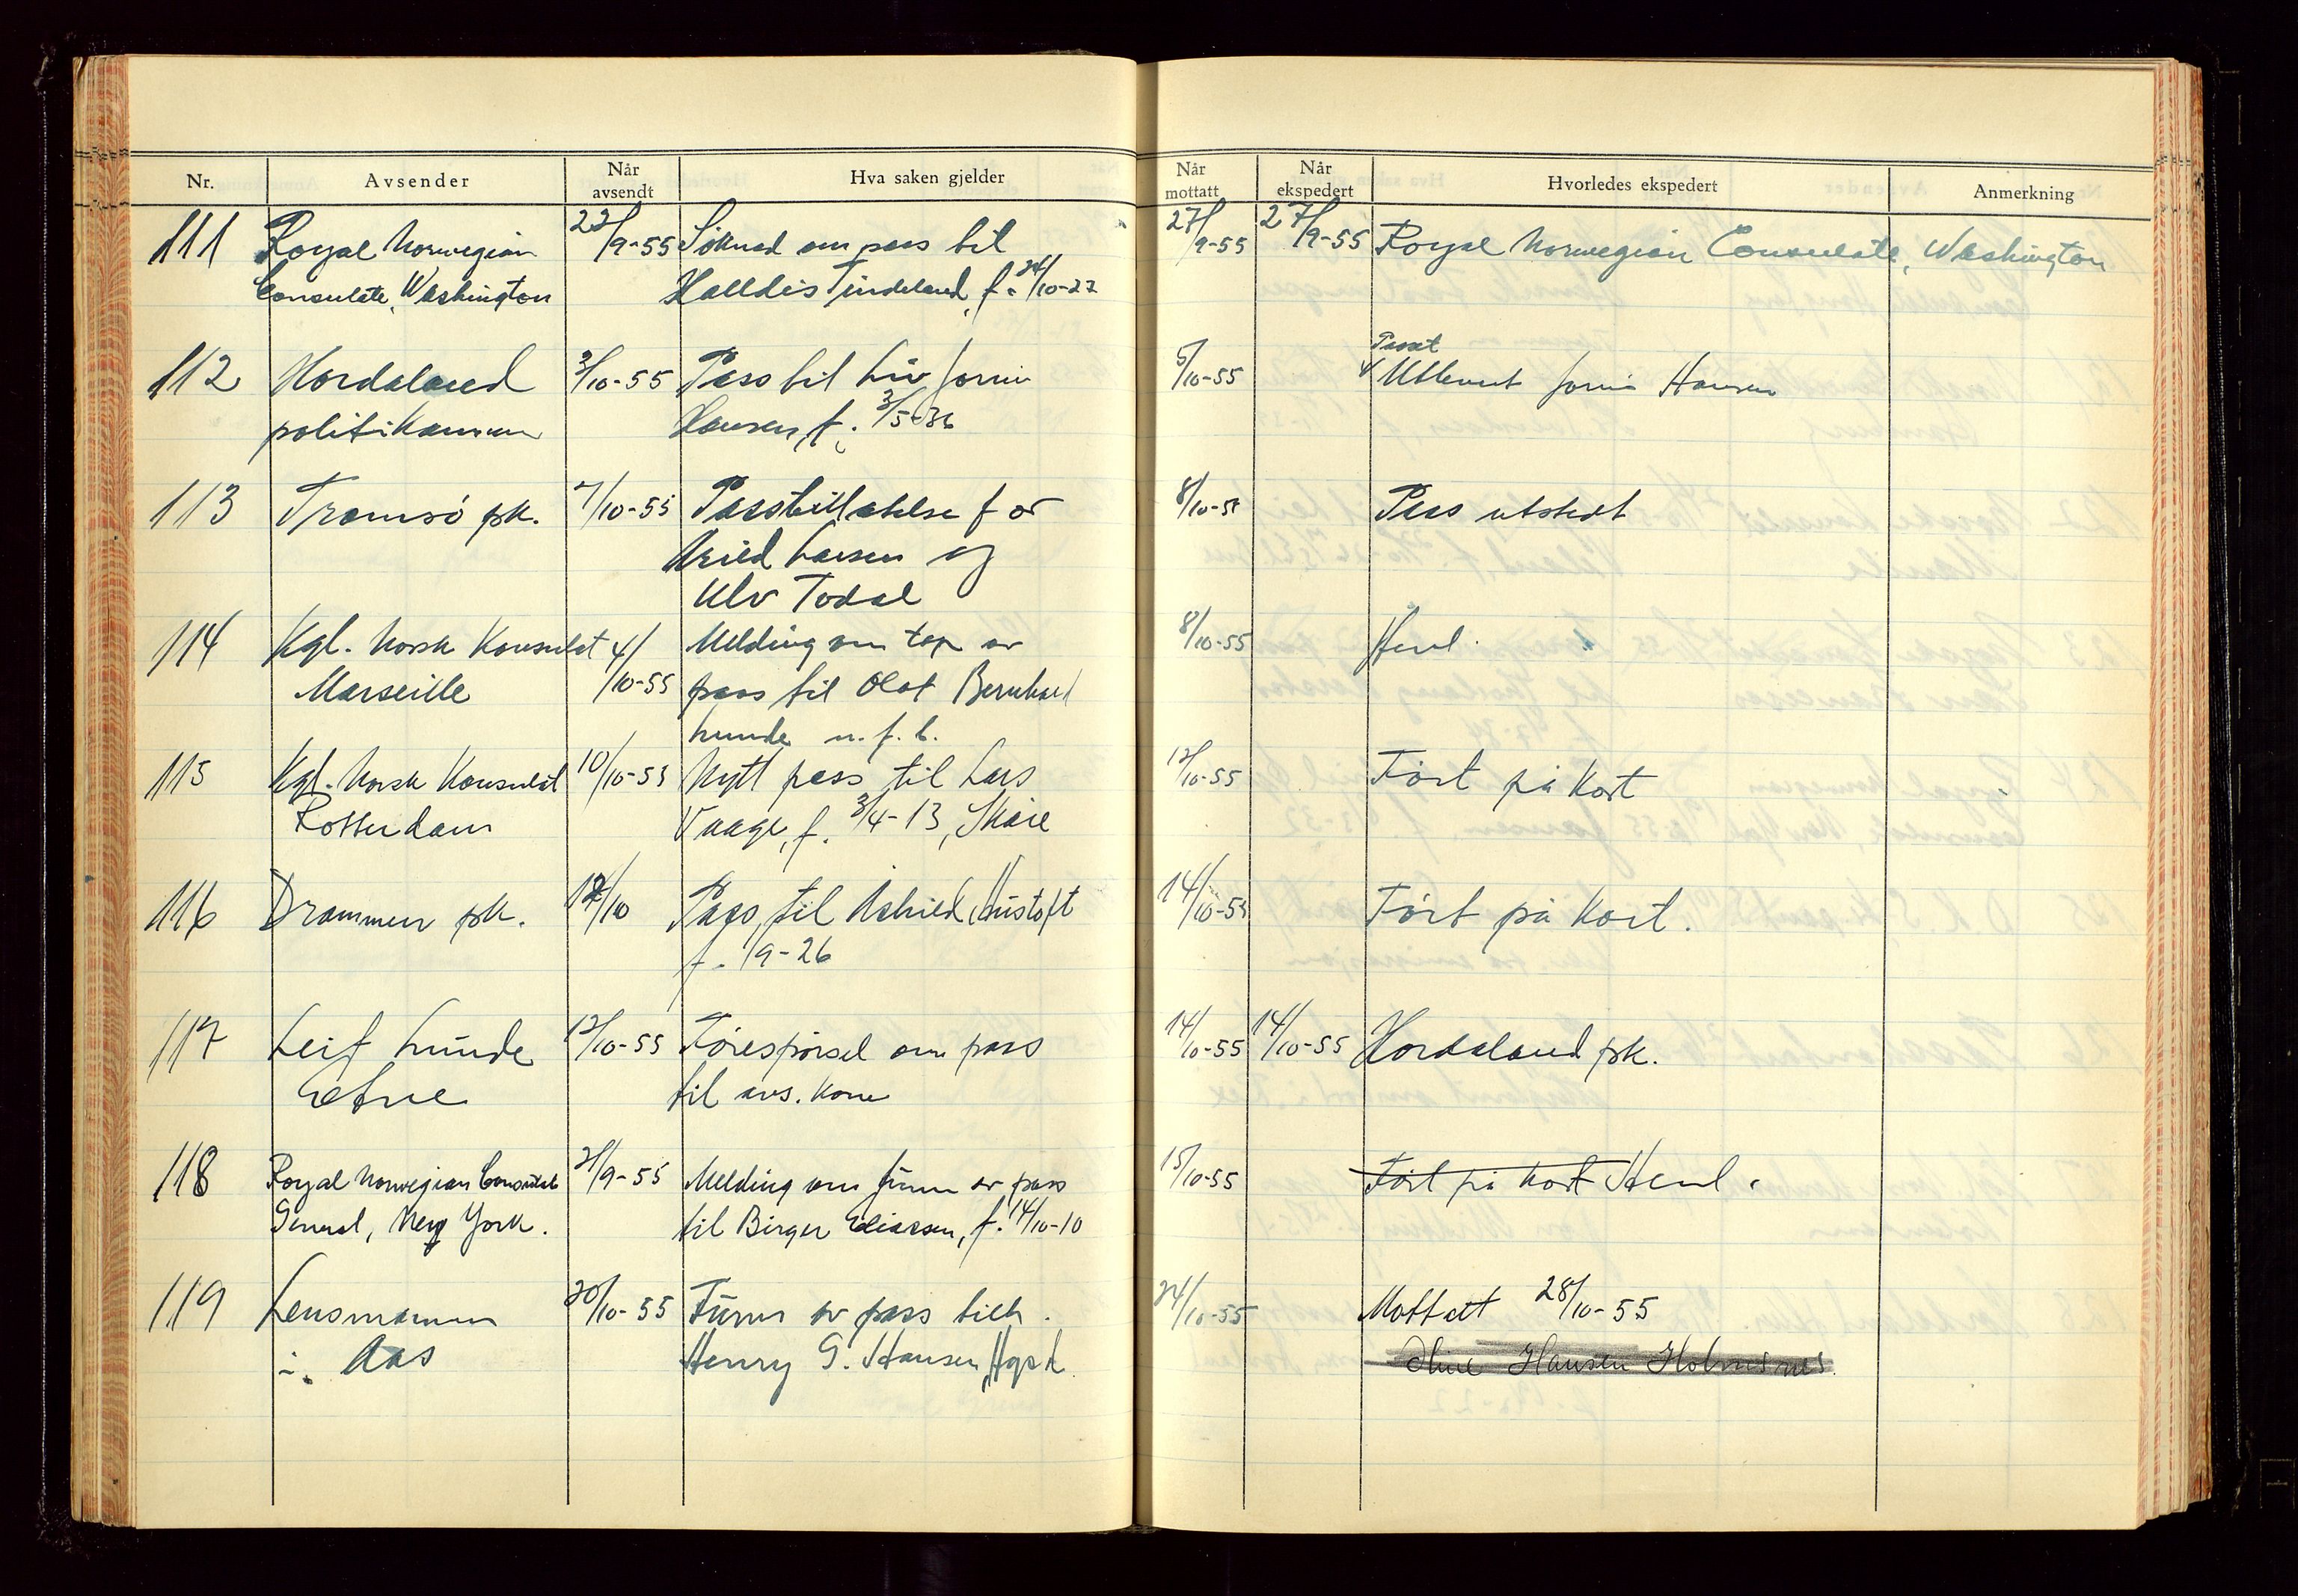 Nr.
Avsender
Når avsendt
Hva saken gjelder
Når mottatt
Når ekspedert
Hvorledes ekspedert
Anmerkning
111 Royal Norwegian 23/9-55 Søknad om pass til 27/9-55 27/9-55 Royal Norwegian Consulate, Washington
Consulate, Washington Halldis Tindeland, f. 24/10-27
Passet
112 Hordaland 3/10-55 Pass til Liv Jorun 5/10-55 Utlevert Jorun Hansen
politikammer Hansen, f. 3/5-36
113 Tromsø pk. 7/10-55 Passtillatelse for 8/10-55 Pass utstedt
Larsen og
Ulv Todal
114 Kgl. Norsk Konsulat 4/10-55 Melding om tap av 8/10-55 Henl.
Marseille pass til Olat Bernhard
Lunde u.f.b.
115 Kgl. Norsk Konsulat 10/10-55 Nytt pass til Lars 12/10-55 Ført på kort
Rotterdam Vaage, f. 3/4-13, Skåre
116 Drammen pk. 12/10 Pass til Astrid 14/10-55 Ført på kort.
f. /9-26
117 Leif Lunde 12/10-55 Førespørsel om pass 14/10-55 14/10-55 Hordaland pk.
Etne til avs. kone
118 Royal Norwegian Consulate 21/9-55 Melding om funn av pass 15/10-55 Ført på kort Henl.
General, New York. til Birger Eliassen, f. 14/10-10
119 Lensmannen 20/10-55 Funn av pass tilh. 24/10-55 Mottatt 28/10-55
i Aas Henry G. Hansen, Hgsd. Hansen Holmesnes.